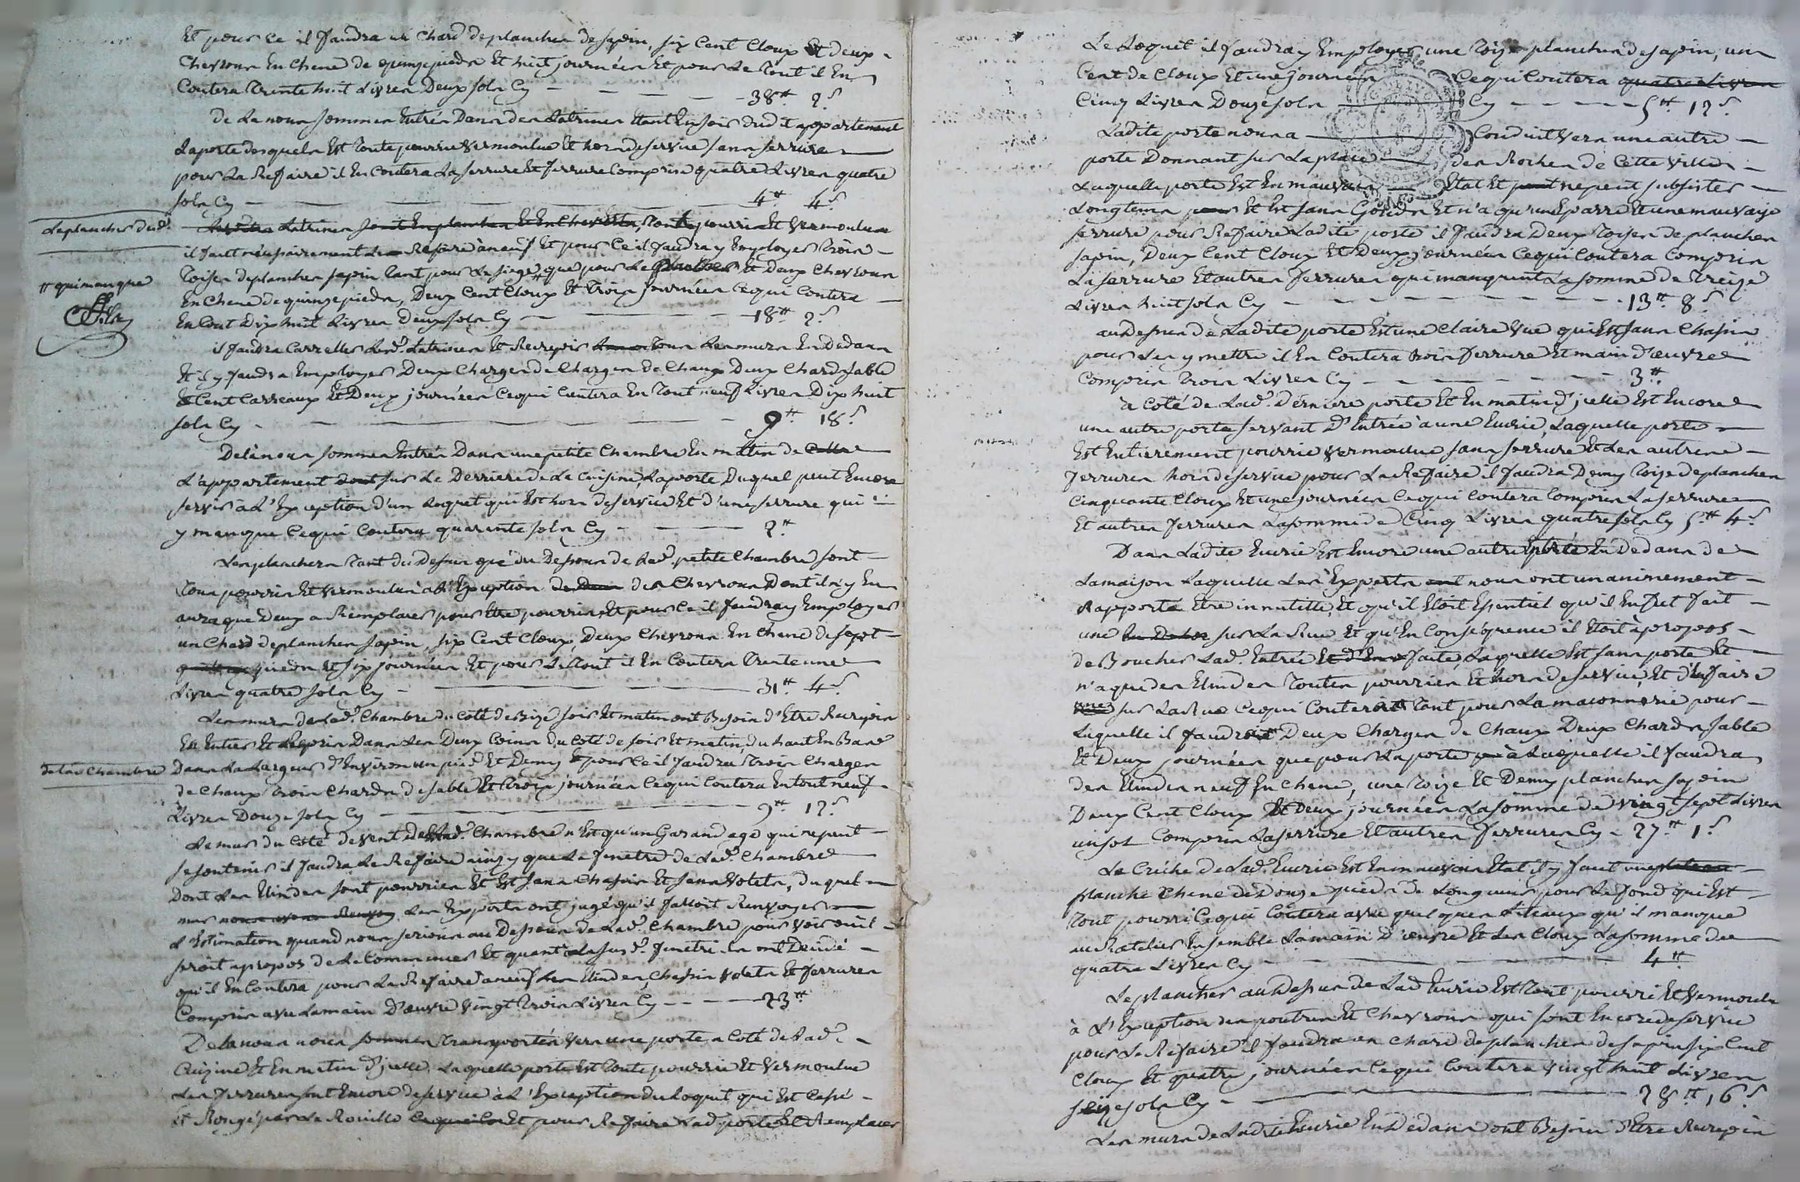 Et pour ce il faudra un Chard de planches de sapin, six Cent Cloux Et deux
Chevrons En Chene de quinze pieds Et huit journées Et pour Le Tout il En
Coutera Trente huit Livres Deux sols Cy 38ᵗᵗ 2ˢ
De La nous sommes Entrés Dans des Latrines Etant En soir dudit appartement
La porte desquels Est Toute pourrie vermoulue Et hors de servie sans serrure
pour La Refaire il En coutera La serrure Et ferrure Comprise quatre Livres quatre
sols Cy 4ᵗᵗ 4ˢ
Le plancher desd.
Latrines sont En planches Et En Chevrons, Tout pourri Et vermoulu
il faut nécessairement Les Refaire à neuf Et pour Ce il faudra y Employer Trois
Toises de planches sapin Tant pour Le siege que pour Le plancher Et Deux Chevrons
tt qui manque
En Chene de quinze pieds, Deux Cent Cloux Et Trois journées Ce qui Coutera
En Tout Dix huit Livres Deux sols Cy 18ᵗᵗ 2ˢ
il faudra Carreller Lesd. Latrines Et Recrepir Tous Les murs En Dedans
Et il y faudra Employer Deux Charges de Charges de Chaux Deux Chards sable
Et Cent Carreaux Et Deux journées Ce qui Coutera En Tout neuf Livres Dix huit
sols Cy 9ᵗᵗ 18ˢ
De La nous sommes Entrés Dans une petite Chambre En matin de Celle
L'appartement sur Le Derriere de La Cuisine, La porte Duquel peut Encore
servir à L'Exception d'un Loquet qui Est hors de servie Et d'une serrure qui
y manque Ce qui Coutera quarante sols Cy 2ᵗᵗ
Les planchers Tant du Dessus que du Dessous de Lad. petite Chambre sont
Tous pourris Et vermoulus à L'Exception des Chevrons Dont il n'y En
aura que Deux a Remplacer pour Etre pourris Et pour Ce il faudra y Employer
un Chard de planches sapin, six Cent Cloux, Deux Chevrons En Chene de sept
pieds Et six journées Et pour Le Tout il En Coutera Trente une
Livres quatre sols Cy 31ᵗᵗ 4ˢ
Les murs de Lad. Chambre du Coté de Bize soir Et matin ont Besoin d'Etre Recrepis
En Entier Et Repris Dans Les Deux Coins du Coté de soir Et matin, du haut En Bas
de lad. Chambre
Dans La Largeur d'Environ un pied Et Demy Et pour Ce il faudra Trois Charges
de Chaux Trois Chards de sable Et Trois journées Ce qui Coutera En tout neuf
Livres Douze sols Cy 9ᵗᵗ 12ˢ
Le mur du Coté de vent de Lad. Chambre n'Est qu'un Garandage qui ne peut
se soutenir il faudra Le Refaire ainsy que La fenetre de Lad. Chambre
Dont Les Elindes sont pourries Et Est sans Chasses Et sans Volets, duquel
mur Les Experts ont jugé qu'il falloit Renvoyer
L'Estimation quand nous serions au Dessous de Lad. Chambre pour voir ou il
seroit apropos de Le Commencer Et quant a La susd. fenetre ils ont Decidé
qu'il En Coutera pour La Refaire à neuf Elindes, Chassis volets Et ferrures
Compris avec La main D'œuvre Vingt Trois Livres Cy 23ᵗᵗ
De La nous nous sommes Transportés vers une porte a Coté de Lad.
Cuizine Et En matin d'icelle Laquelle porte Est Toute pourrie Et vermoulue
Les ferrures sont Encore de servie à L'Exception du Loquet qui Est Cassé
Et Rongé par La Rouille Et pour Refaire Lad. porte Et Remplacer
Le Loquet il faudra y Employer une Toize planches de sapin, un
Cent de Cloux Et une journée Ce qui Coutera quatre Livres
Cinq Livres Douze sols Cy 5ᵗᵗ 12ˢ
Ladite porte nous a Conduit vers une autre
porte Donnant sur La place des Roches de Cette Ville
Laquelle porte Est En mauvais Etat Et ne peut subsister
Longtems Et Est sans Gonds Et n'a qu'une parre Et une mauvaise
serrure pour Refaire Ladite porte il faudra Deux Toises de planches
sapin, Deux Cent Cloux Et Deux journées Ce qui Coutera Compris
La serrure Et autres ferrures qui manquent La somme de Treize
Livres huit sols Cy 13ᵗᵗ 8ˢ
au Dessus de Ladite porte Est une Claire Vue qui Est sans Chassis
pour Les y mettre il En Coutera Trois ferrure Et main d'œuvre
Compris Trois Livres Cy 3ᵗᵗ
a Coté de Lad. Derniere porte Et En matin d'icelle Est Encore
une autre porte servant D'Entrée a une Ecurie, Laquelle porte
Est Entierement pourrie vermoulue sans serrure Et Les autres
ferrures hors de servie pour La Refaire il faudra Demy Toize de planches
Cinquante Cloux Et une journée Ce qui Coutera Compris La serrure
Et autres ferrures La somme de Cinq Livres quatre sols Cy 5ᵗᵗ 4ˢ
Dans Ladite Ecurie Est Encore une autre porte En Dedans de
La maison Laquelle Les Experts nous ont unanimement
Rapporté Etre innutille Et qu'il Etoit Essentiel qu'il En fut fait
une sur La Rue Et qu'En Conséquence il Etoit àpropos
de Boucher Lad. Entrée faite Laquelle Est sans porte Et
n'a que des Elindes Toutes pourries Et hors de servie, Et d'En faire
sur La Rue Ce qui Coutera Tant pour La maconnerie pour
Laquelle il faudra Deux Charges de Chaux Deux Chards sable
Et Deux journées que pour La porte à Laquelle il faudra
des Elindes neuf En Chene, une Toize Et Demy planches sapin
Deux Cent Cloux Et Deux journées La somme de vingt sept Livres
un sol Compris La serrure Et autres ferrures Cy 27ᵗᵗ 1ˢ
La Crêche de Lad. Ecurie Est En mauvais Etat il y faut une
planche Chene de Douze pieds de Longueur pour Le fond qui Est
Tout pourri Ce qui Coutera avec quelques Liteaux qu'il manque
au Ratelier Ensemble La main D'œuvre Et Les Cloux La somme de
quatre Livres Cy 4ᵗᵗ
Le plancher au Dessus de Lad. Ecurie Est Tout pourri Et vermoulu
à L'Exception des poutres Et Chevrons qui sont Encore de servie
pour Le Refaire il faudra un Chard de planches de sapin six Cent
Cloux Et quatre journées Ce qui Coutera vingt huit Livres
seize sols Cy 28ᵗᵗ 16ˢ
Les murs de Ladite Ecurie En Dedans ont Besoin d'Etre Recrepis